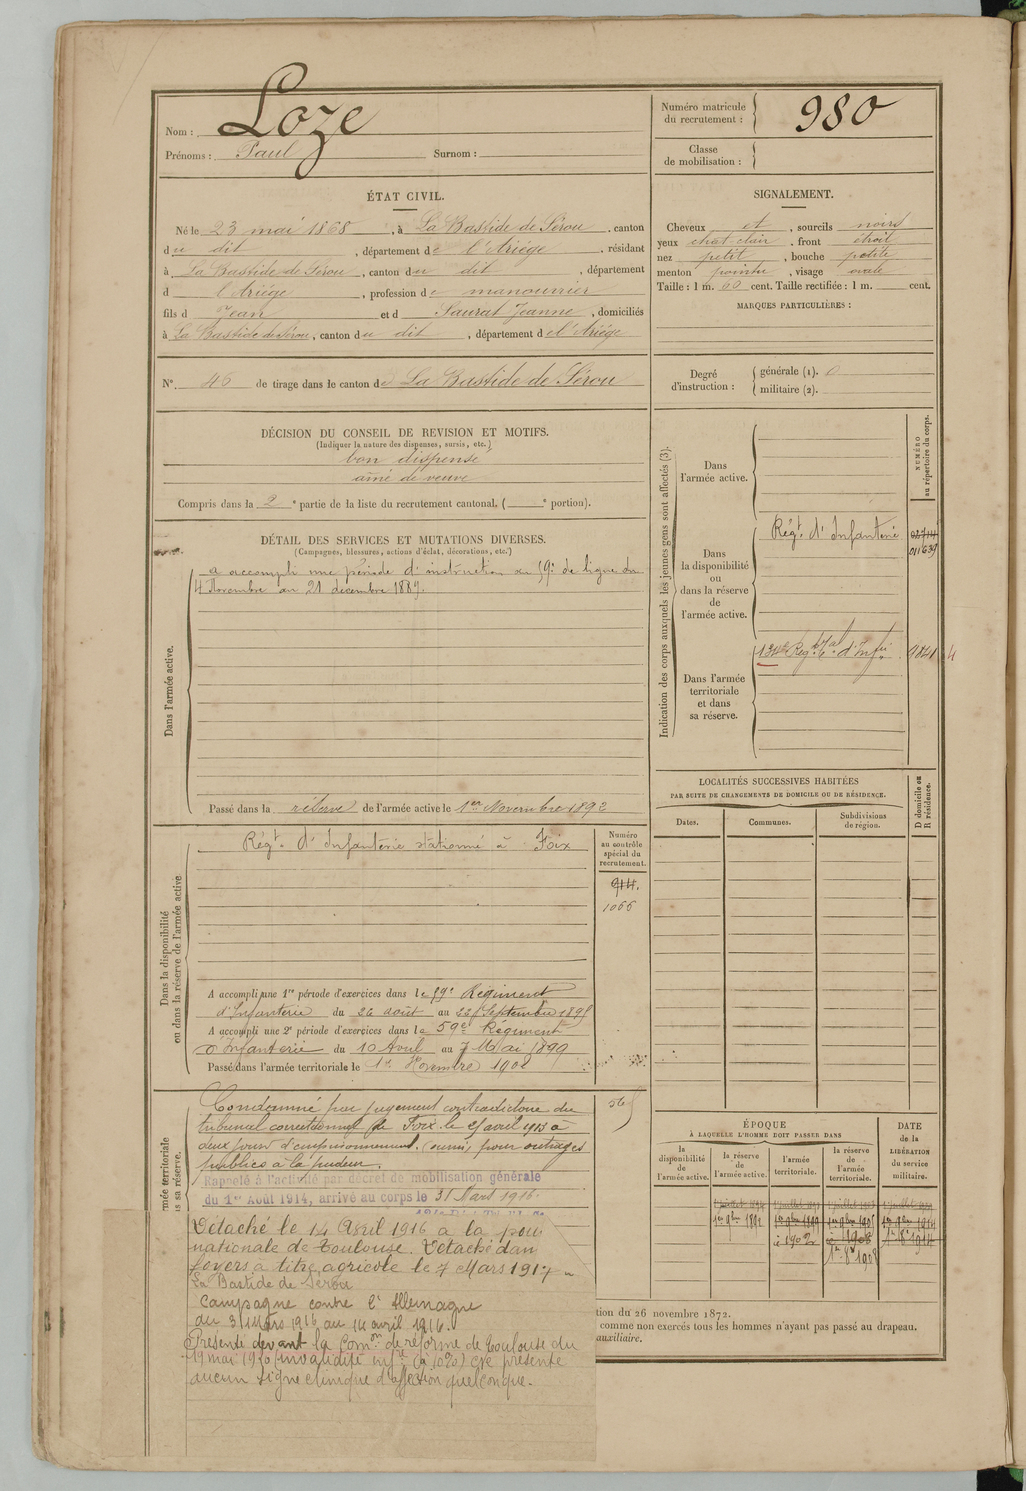 Nom : Loze
Prénoms : Paul Surnom :
Numéro matricule
du recrutement : 980
Classe
de mobilisation :
ÉTAT CIVIL.
Né le 23 mai 1868, à La Bastide de Sérou, canton
du dit, département de l'Ariége, résidant
à La Bastide de Sérou, canton du dit, département
d l'Ariége, profession de manouvrier
fils d Jean et d Saurat Jeanne, domiciliés
à La Bastide de Sérou, canton du dit, département de l'Ariége
N° 46 de tirage dans le canton de La Bastide de Sérou
SIGNALEMENT.
Cheveux et, sourcils noirs
yeux chat-clair, front étroit
nez petit, bouche petite
menton pointu, visage ovale
Taille : 1 m. 60 cent. Taille rectifiée : 1 m. cent.
MARQUES PARTICULIÈRES :
Degré
d'instruction :
générale (1). 0
militaire (2).
DÉCISION DU CONSEIL DE REVISION ET MOTIFS.
(Indiquer la nature des dispenses, sursis, etc.)
bon dispensé
aîné de veuve
Compris dans la 2e partie de la liste du recrutement cantonal, ( e portion).
DÉTAIL DES SERVICES ET MUTATIONS DIVERSES.
(Campagnes, blessures, actions d'éclat, décorations, etc.)
Dans l'armée active.
a accompli une période d'instruction au 59e de ligne du
4 Novembre au 21 décembre 1889.
Passé dans la réserve de l'armée active le 1er Novembre 1892
Indication des corps auxquels les jeunes gens sont affectés (3).
NUMÉRO
au répertoire du corps.
Dans
l'armée active.
Dans
la disponibilité
ou
dans la réserve
de
l'armée active.
Régt. d'Infanterie
011639
Dans l'armée
territoriale
et dans
sa réserve.
134e Régt. tal d'Infie
9821 4
LOCALITÉS SUCCESSIVES HABITÉES
PAR SUITE DE CHANGEMENTS DE DOMICILE OU DE RÉSIDENCE.
D domicile ou
R résidence.
Dates. Communes. Subdivisions
de région.
Dans la disponibilité
ou dans la réserve de l'armée active
Régt. d'Infanterie stationné à Foix
Numéro
au contrôle
spécial du
recrutement.
914.
1066
A accompli une 1re période d'exercices dans le 59e Régiment
d'Infanterie du 26 août au 22 Septembre 1895
A accompli une 2e période d'exercices dans le 59e Régiment
d'Infanterie du 10 Avril au 7 Mai 1899
Passé dans l'armée territoriale le 1er Novembre 1902
mée territoriale
s sa réserve.
Condamné par jugement contradictoire du
tribunal correctionnel de Foix le 5 avril 1913 à
deux jours d'emprisonnement, (sursis) pour outrages
publics à la pudeur.
Rappelé à l'activité par décret de mobilisation générale
du 1er Août 1914, arrivé au corps le 31 Mars 1916.
Détaché le 14 Avril 1916 a la pou
nationale de Toulouse. Détaché dan
foyers a titre agricole le 7 Mars 1917
La Bastide de Serou
Campagne contre l'Allemagne
du 31 Mars 1916 au 14 avril 1916.
Présenté devant la Comon de réforme de Toulouse du
19 mai 1920 (invalidité infre à 10%) Ne présente
aucun signe clinique d'affection quelconque.
ÉPOQUE
À LAQUELLE L'HOMME DOIT PASSER DANS
DATE
de la
LIBÉRATION
du service
militaire.
la
disponibilité
de
l'armée active.
la réserve
de
l'armée active.
l'armée
territoriale.
la réserve
de
l'armée
territoriale.
1er 9bre 1892
1902
1908
1er 8bre 1914
tion du 26 novembre 1872.
comme non exercés tous les hommes n'ayant pas passé au drapeau.
auxiliaire.